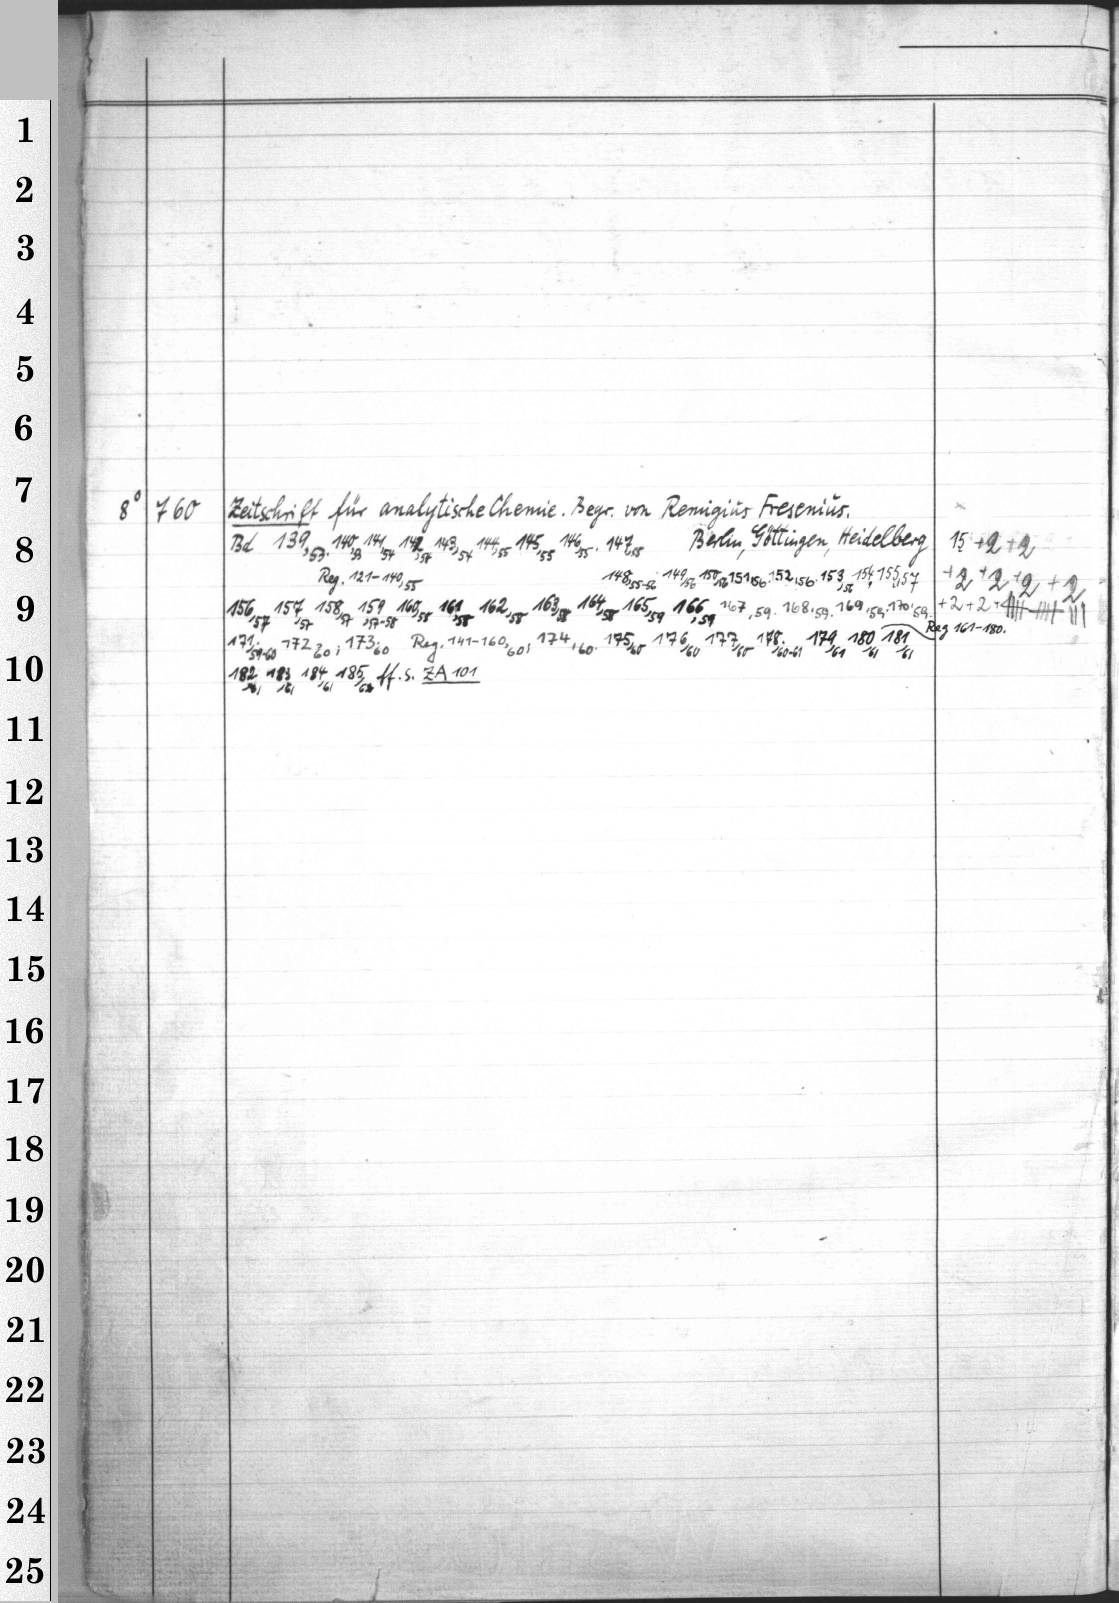 1
2
3
4
5
6
7
8° 760 Zeitschrift für analytische Chemie. Begr. von Remigius Fresenius.
8 Bd 139,53. 140,53 141,54 142,54 143,54 144,55 145,55 146,55. 147,55 Berlin, Göttingen, Heidelberg 15 +2 +2
Reg. 121-140,55 148,55-56 149,56 150,56 151,56 152,56. 153,56 154, 155,57 +2 +2 +2 +2
9 156,57 157,57 158,57 159,57-58 160,58 161,58 162,58 163,58 164,58 165,59 166,59 167,59. 168,59. 169,59. 170,59. +2+2+
Reg 161-180.
171,59-60 172,60; 173,60 Reg. 141-160,60; 174,60. 175,60 176/60 177/60 178,60-61 179/61 180/61 181/61
10 182,61 183,61 184,61 185,62 ff. s. ZA 101
11
12
13
14
15
16
17
18
19
20
21
22
23
24
25